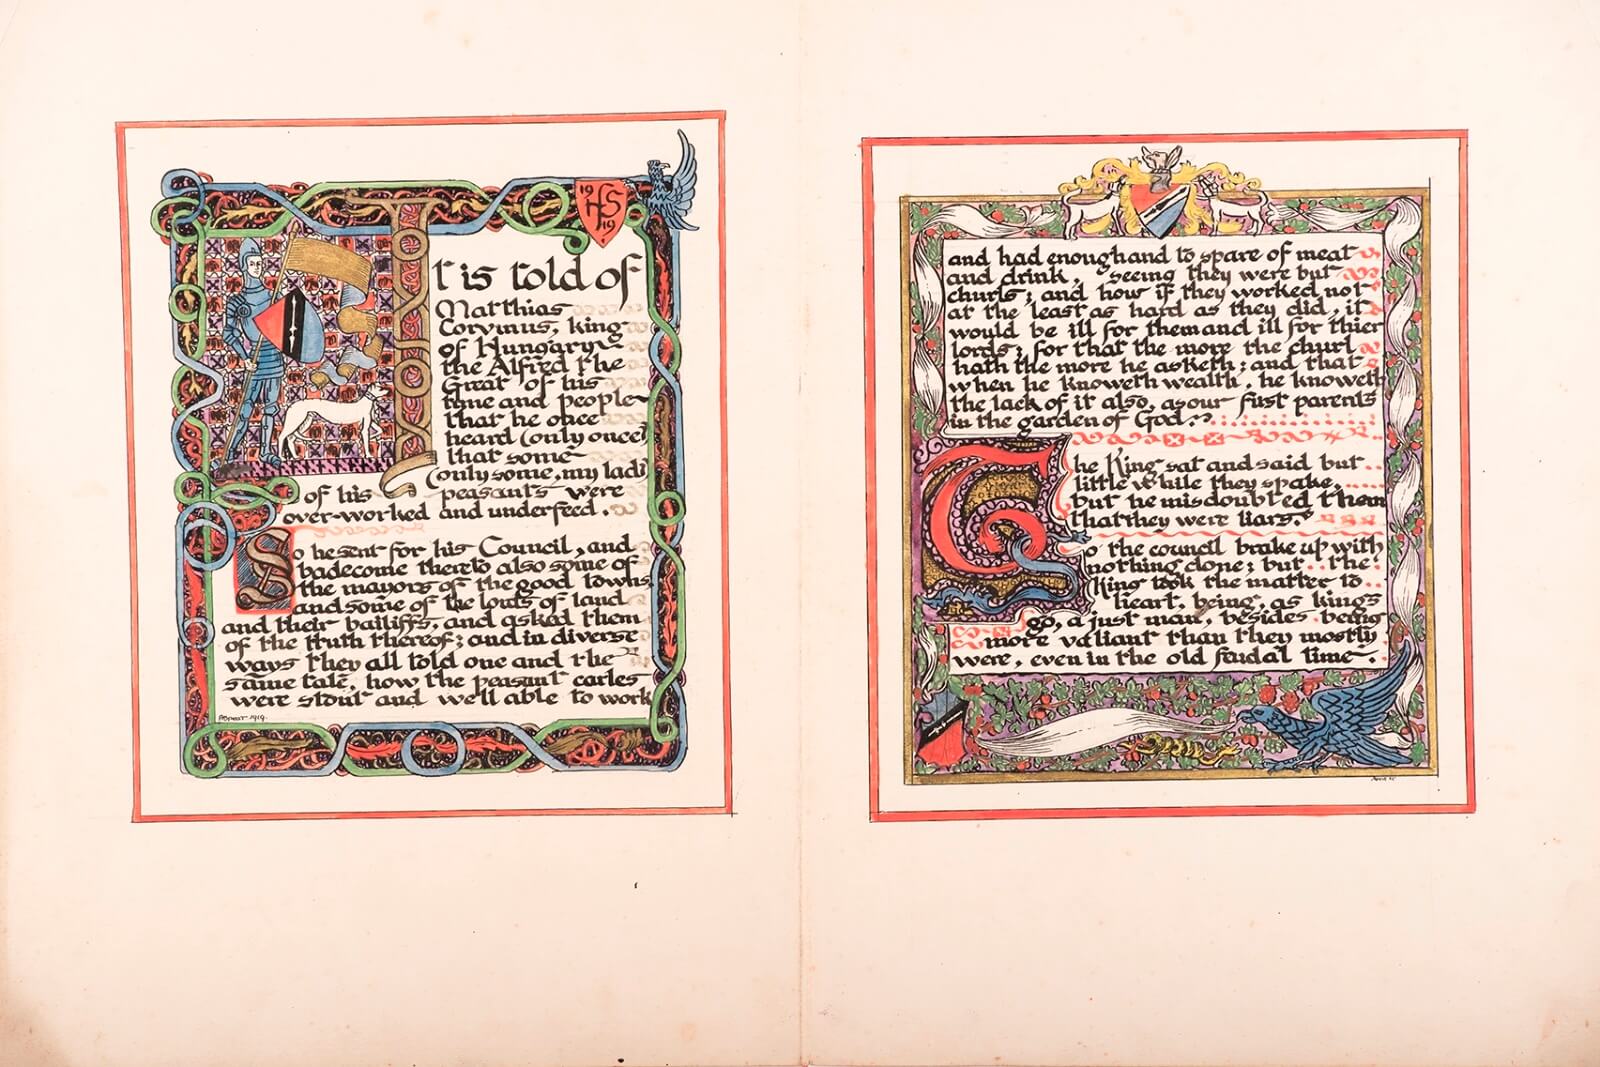 19 HS 19
It is told of
Matthias
Corvinus, king
of Hungary
the Alfred the
Great of his
time and people
that he once
heard (only once)
that some
(only some, my lad)
of his peasants were
over-worked and underfeed.
So he sent for his Council, and
badecome thereto also some of
the mayors of the good towns,
and some of the lords of land
and their bailiffs, and asked them
of the truth thereof; and in diverse
ways they all told one and the
same tale, how the peasant carles
were stout and well able to work
1919.
and had enough and to spare of meat
and drink, seeing they were but
churls; and how if they worked not
at the least as hard as they did, it
would be ill for them and ill for thier
lords; for that the more the churl
hath the more he asketh; and that
when he knoweth wealth, he knoweth
the lack of it also, as our first parents
in the garden of God.
The King sat and said but
little while they spake,
but he misdoubted them
that they were liars.
So the council brake up with
nothing done; but the
King took the matter to
heart, being, as kings
go, a just man, besides being
more valiant than they mostly
were, even in the old feudal time.